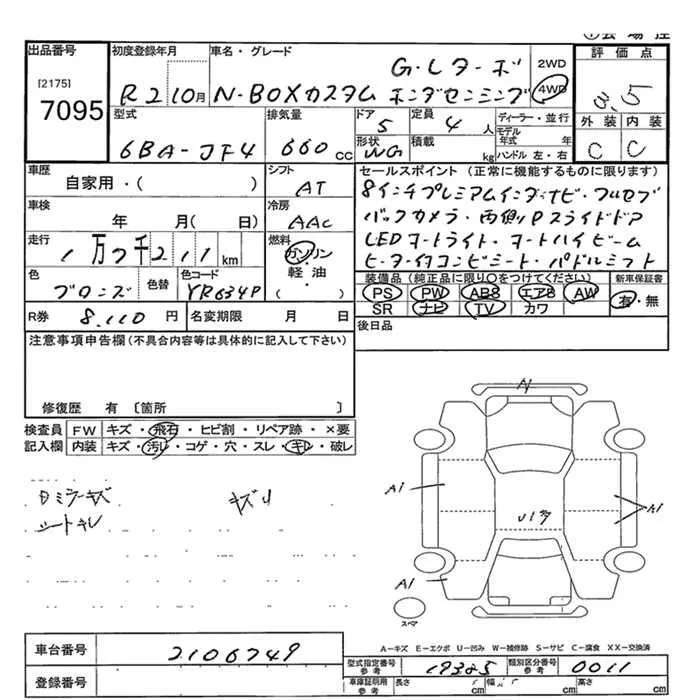 出品番号 初度登録年月 車名・グレード 評価点
[2175]
7095
R2 10月 N-BOXカスタム G・Lターボ ホンダセンシング 2WD 4WD
3.5
型式 排気量 ドア 定員 ディーラー・並行
6BA-JF4 660 CC 5 4 人 モデル年式 年
形状 積載 kg ハンドル 左・右
WG
外装 内装
C C
車歴 シフト セールスポイント (正常に機能するものに限ります)
自家用・( ) AT 8インチプレミアムインターナビ・フルセグ
車検 冷房 バックカメラ・両側Pスライドドア
年 月( 日) AAC LEDオートライト・オートハイビーム
走行 燃料 ヒーター付コンビシート・パドルシフト
1万7千211km ガソリン・軽油・( )
装備品 (純正品に限り○をつけてください) 新車保証書
色 色替 色コード
ブロンズ YR634P
PS PW ABS エアB AW 有・無
SR ナビ TV カワ
R券 8,110 円 名変期限 月 日
後日品
注意事項申告欄(不具合内容等は具体的に記入して下さい)
修復歴 有 〔箇所 〕
検査員記入欄 FW キズ・飛石・ヒビ割・リペア跡・×要
内装 キズ・汚レ・コゲ・穴・スレ・キレ・破レ
ミラーキズ キズU
シートキレ
A1
A1
A1
A1
スペア
A-キズ E-エクボ U-凹み W-補修跡 S-サビ C-腐食 XX-交換済
車台番号 2106749
型式指定番号 参考 19385 類別区分番号 参考 0011
登録番号
車庫証明用 参考 長さ cm 幅 cm 高さ cm